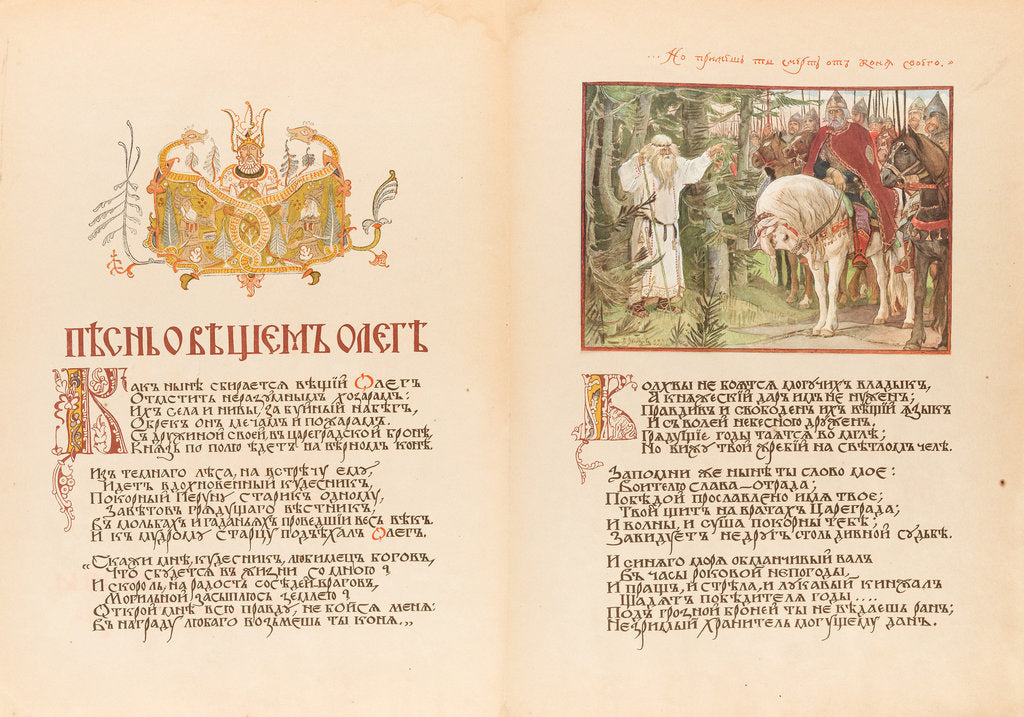 ПѢСНЬ О ВѢЩЕМЪ ОЛЕГѢ
Какъ нынѣ сбирается вѣщій Олегъ
Отмстить неразумнымъ хозарамъ:
Ихъ села и нивы, за буйный набѣгъ,
Обрекъ онъ мечамъ и пожарамъ.
Съ дружиной своей, въ цареградской бронѣ,
Князь по полю ѣдетъ на вѣрномъ конѣ.
Изъ темнаго лѣса, на встрѣчу ему,
Идетъ вдохновенный кудесникъ,
Покорный Перуну старикъ одному,
Завѣтовъ грядущаго вѣстникъ,
Въ мольбахъ и гаданьяхъ проведшій весь вѣкъ.
И къ мудрому старцу подъѣхалъ Олегъ.
„Скажи мнѣ, кудесникъ, любимецъ боговъ,
Что сбудется въ жизни со мною?
И скоро ль, на радость сосѣдей враговъ,
Могильной засыплюсь землею?
Открой мнѣ всю правду, не бойся меня:
Въ награду любаго возьмешь ты коня.„
...Но примешь ты смерть отъ коня своего.»
Волхвы не боятся могучихъ владыкъ,
А княжескій даръ имъ не нуженъ;
Правдивъ и свободенъ ихъ вѣщій языкъ
И съ волей небесною друженъ.
Грядущіе годы таятся во мглѣ;
Но вижу твой жребій на свѣтломъ челѣ.
Запомни же нынѣ ты слово мое:
Воителю слава—отрада;
Побѣдой прославлено имя твое;
Твой щитъ на вратахъ Цареграда;
И волны, и суша покорны тебѣ;
Завидуетъ недругъ столь дивной судьбѣ.
И синяго моря обманчивый валъ
Въ часы роковой непогоды,
И пращъ, и стрѣла, и лукавый кинжалъ
Щадятъ побѣдителя годы....
Подъ грозной броней ты не вѣдаешь ранъ;
Незримый хранитель могущему данъ.